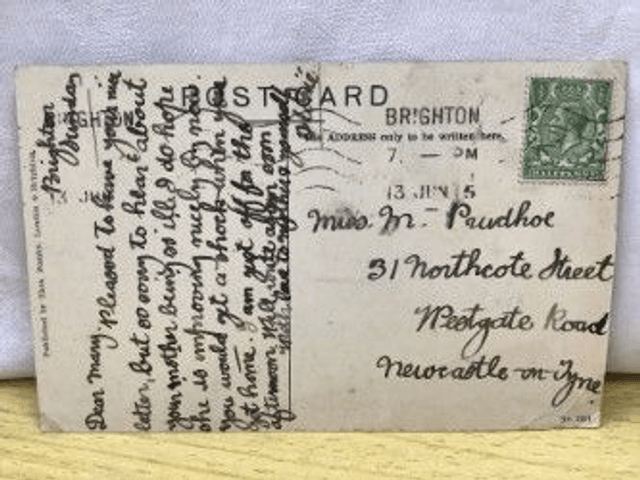 POST CARD
The ADDRESS only to be written here.
BRIGHTON
7. — PM
13 JUN 15
HALFPENNY
Miss. M. Prudhoe
31 Northcote Street
Westgate Road
Newcastle-on-Tyne.
Brighton
Sunday
Dear Mary, Pleased to have your nice
letter, but so sorry to hear about
your mother being so ill, I do hope
she is improving nicely by now.
you would get a shock when you
got home. I am just off for the
afternoon, will write again soon
with love to
Published by
London &